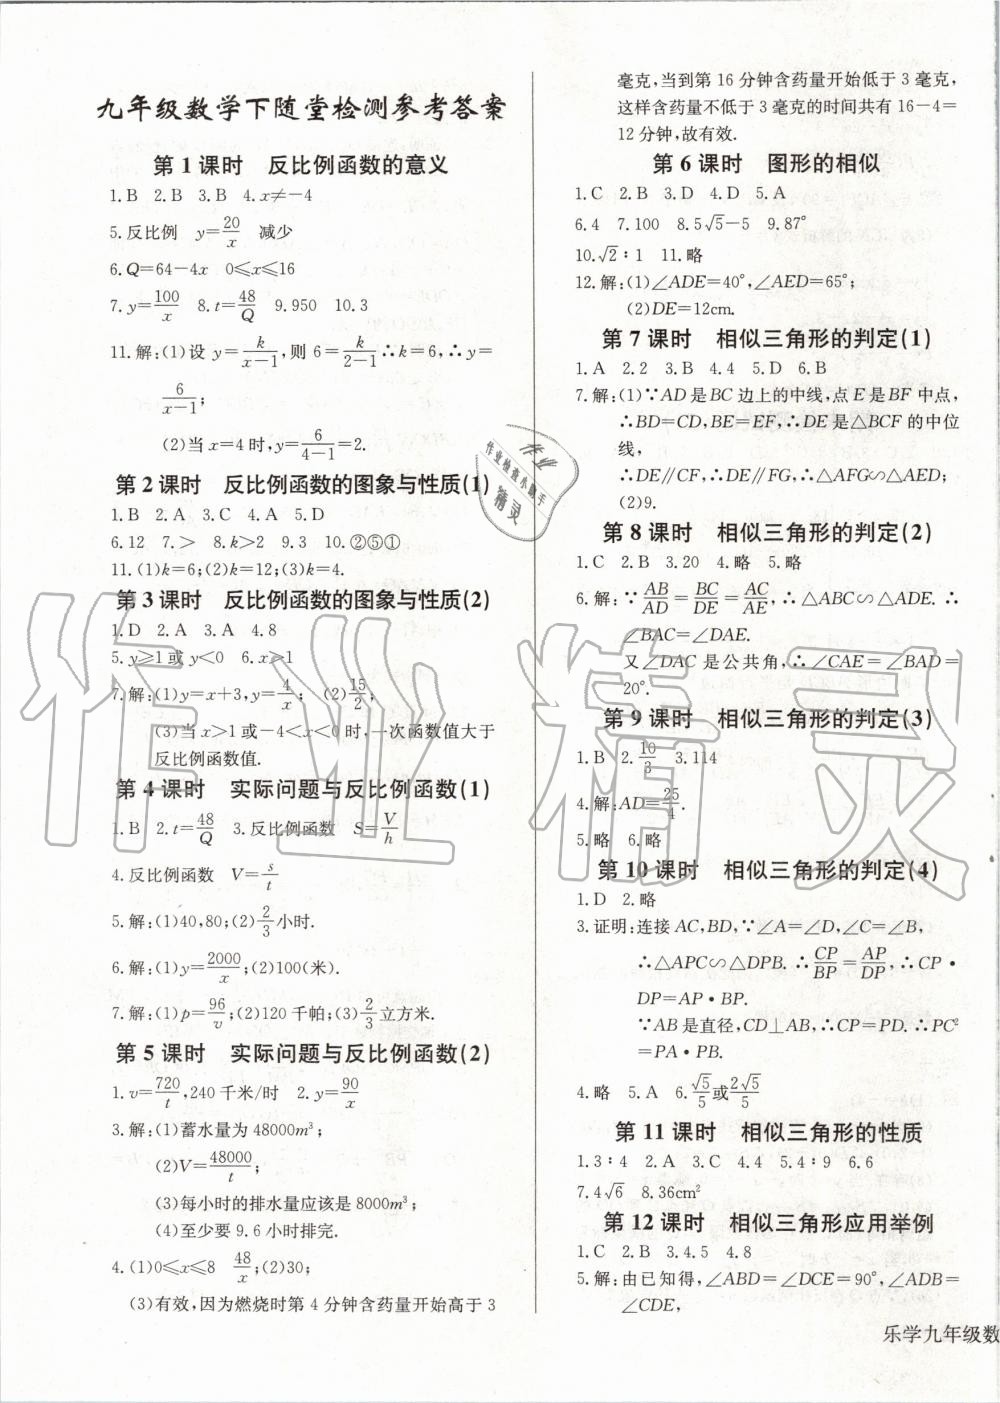 九年级数学下随堂检测参考答案
第1课时　反比例函数的意义
1.B　2.B　3.B　4.x≠-4
5.反比例　y=20/x　减少
6.Q=64-4x　0≤x≤16
7.y=100/x　8.t=48/Q　9.950　10.3
11.解:(1)设 y=k/(x-1),则 6=k/(2-1)∴k=6,∴y=
6/(x-1);
(2)当 x=4 时,y=6/(4-1)=2.
第2课时　反比例函数的图象与性质(1)
1.B　2.A　3.C　4.A　5.D
6.12　7.>　8.k>2　9.3　10.②⑤①
11.(1)k=6;(2)k=12;(3)k=4.
第3课时　反比例函数的图象与性质(2)
1.D　2.A　3.A　4.8
5.y≥1或 y<0　6.x≥1
7.解:(1)y=x+3,y=4/x;　(2)15/2;
(3)当 x>1 或-4<x<0 时,一次函数值大于
反比例函数值.
第4课时　实际问题与反比例函数(1)
1.B　2.t=48/Q　3.反比例函数　S=V/h
4.反比例函数　V=s/t
5.解:(1)40,80;(2)2/3小时.
6.解:(1)y=2000/x;(2)100(米).
7.解:(1)p=96/v;(2)120 千帕;(3)2/3立方米.
第5课时　实际问题与反比例函数(2)
1.v=720/t,240 千米/时　2.y=90/x
3.解:(1)蓄水量为 48000m³;
(2)V=48000/t;
(3)每小时的排水量应该是8000m³;
(4)至少要 9.6 小时排完.
4.(1)0≤x≤8　48/x;(2)30;
(3)有效,因为燃烧时第 4 分钟含药量开始高于 3
毫克,当到第 16 分钟含药量开始低于 3 毫克,
这样含药量不低于 3 毫克的时间共有 16-4=
12 分钟,故有效.
第6课时　图形的相似
1.C　2.B　3.D　4.D　5.A
6.4　7.100　8.5√5-5　9.87°
10.√2∶1　11.略
12.解:(1)∠ADE=40°,∠AED=65°;
(2)DE=12cm.
第7课时　相似三角形的判定(1)
1.A　2.2　3.B　4.4　5.D　6.B
7.解:(1)∵AD 是 BC 边上的中线,点 E 是 BF 中点,
∴BD=CD,BE=EF,∴DE 是△BCF 的中位
线,
∴DE∥CF,∴DE∥FG,∴△AFG∽△AED;
(2)9.
第8课时　相似三角形的判定(2)
1.C　2.B　3.20　4.略　5.略
6.解:∵AB/AD=BC/DE=AC/AE,∴△ABC∽△ADE.∴
∠BAC=∠DAE.
又∠DAC 是公共角,∴∠CAE=∠BAD=
20°.
第9课时　相似三角形的判定(3)
1.B　2.10/3　3.114
4.解:AD=25/4.
5.略　6.略
第10课时　相似三角形的判定(4)
1.D　2.略
3.证明:连接 AC,BD,∵∠A=∠D,∠C=∠B,
∴△APC∽△DPB.∴CP/BP=AP/DP,∴CP·
DP=AP·BP.
∵AB 是直径,CD⊥AB,∴CP=PD.∴PC²
=PA·PB.
4.略　5.A　6.√5/5或2√5/5
第11课时　相似三角形的性质
1.3∶4　2.A　3.C　4.4　5.4∶9　6.6
7.4√6　8.36cm²
第12课时　相似三角形应用举例
1.C　2.B　3.4.5　4.8
5.解:由已知得,∠ABD=∠DCE=90°,∠ADB=
∠CDE,
乐学九年级数
作业
作业检查小助手
精灵
作业精灵